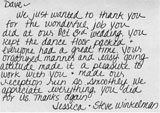 Dave -
We just wanted to thank you
for the wonderful job you
did at our Oct 6th wedding. You
kept the dance floor packed -
everyone had a great time. Your
organized manner and easy going
attitude made it a pleasure to
work with you - made our
reception run so smoothly. We
appreciate everything you did
for us. Thanks again!
Jessica + Steve Winkelman